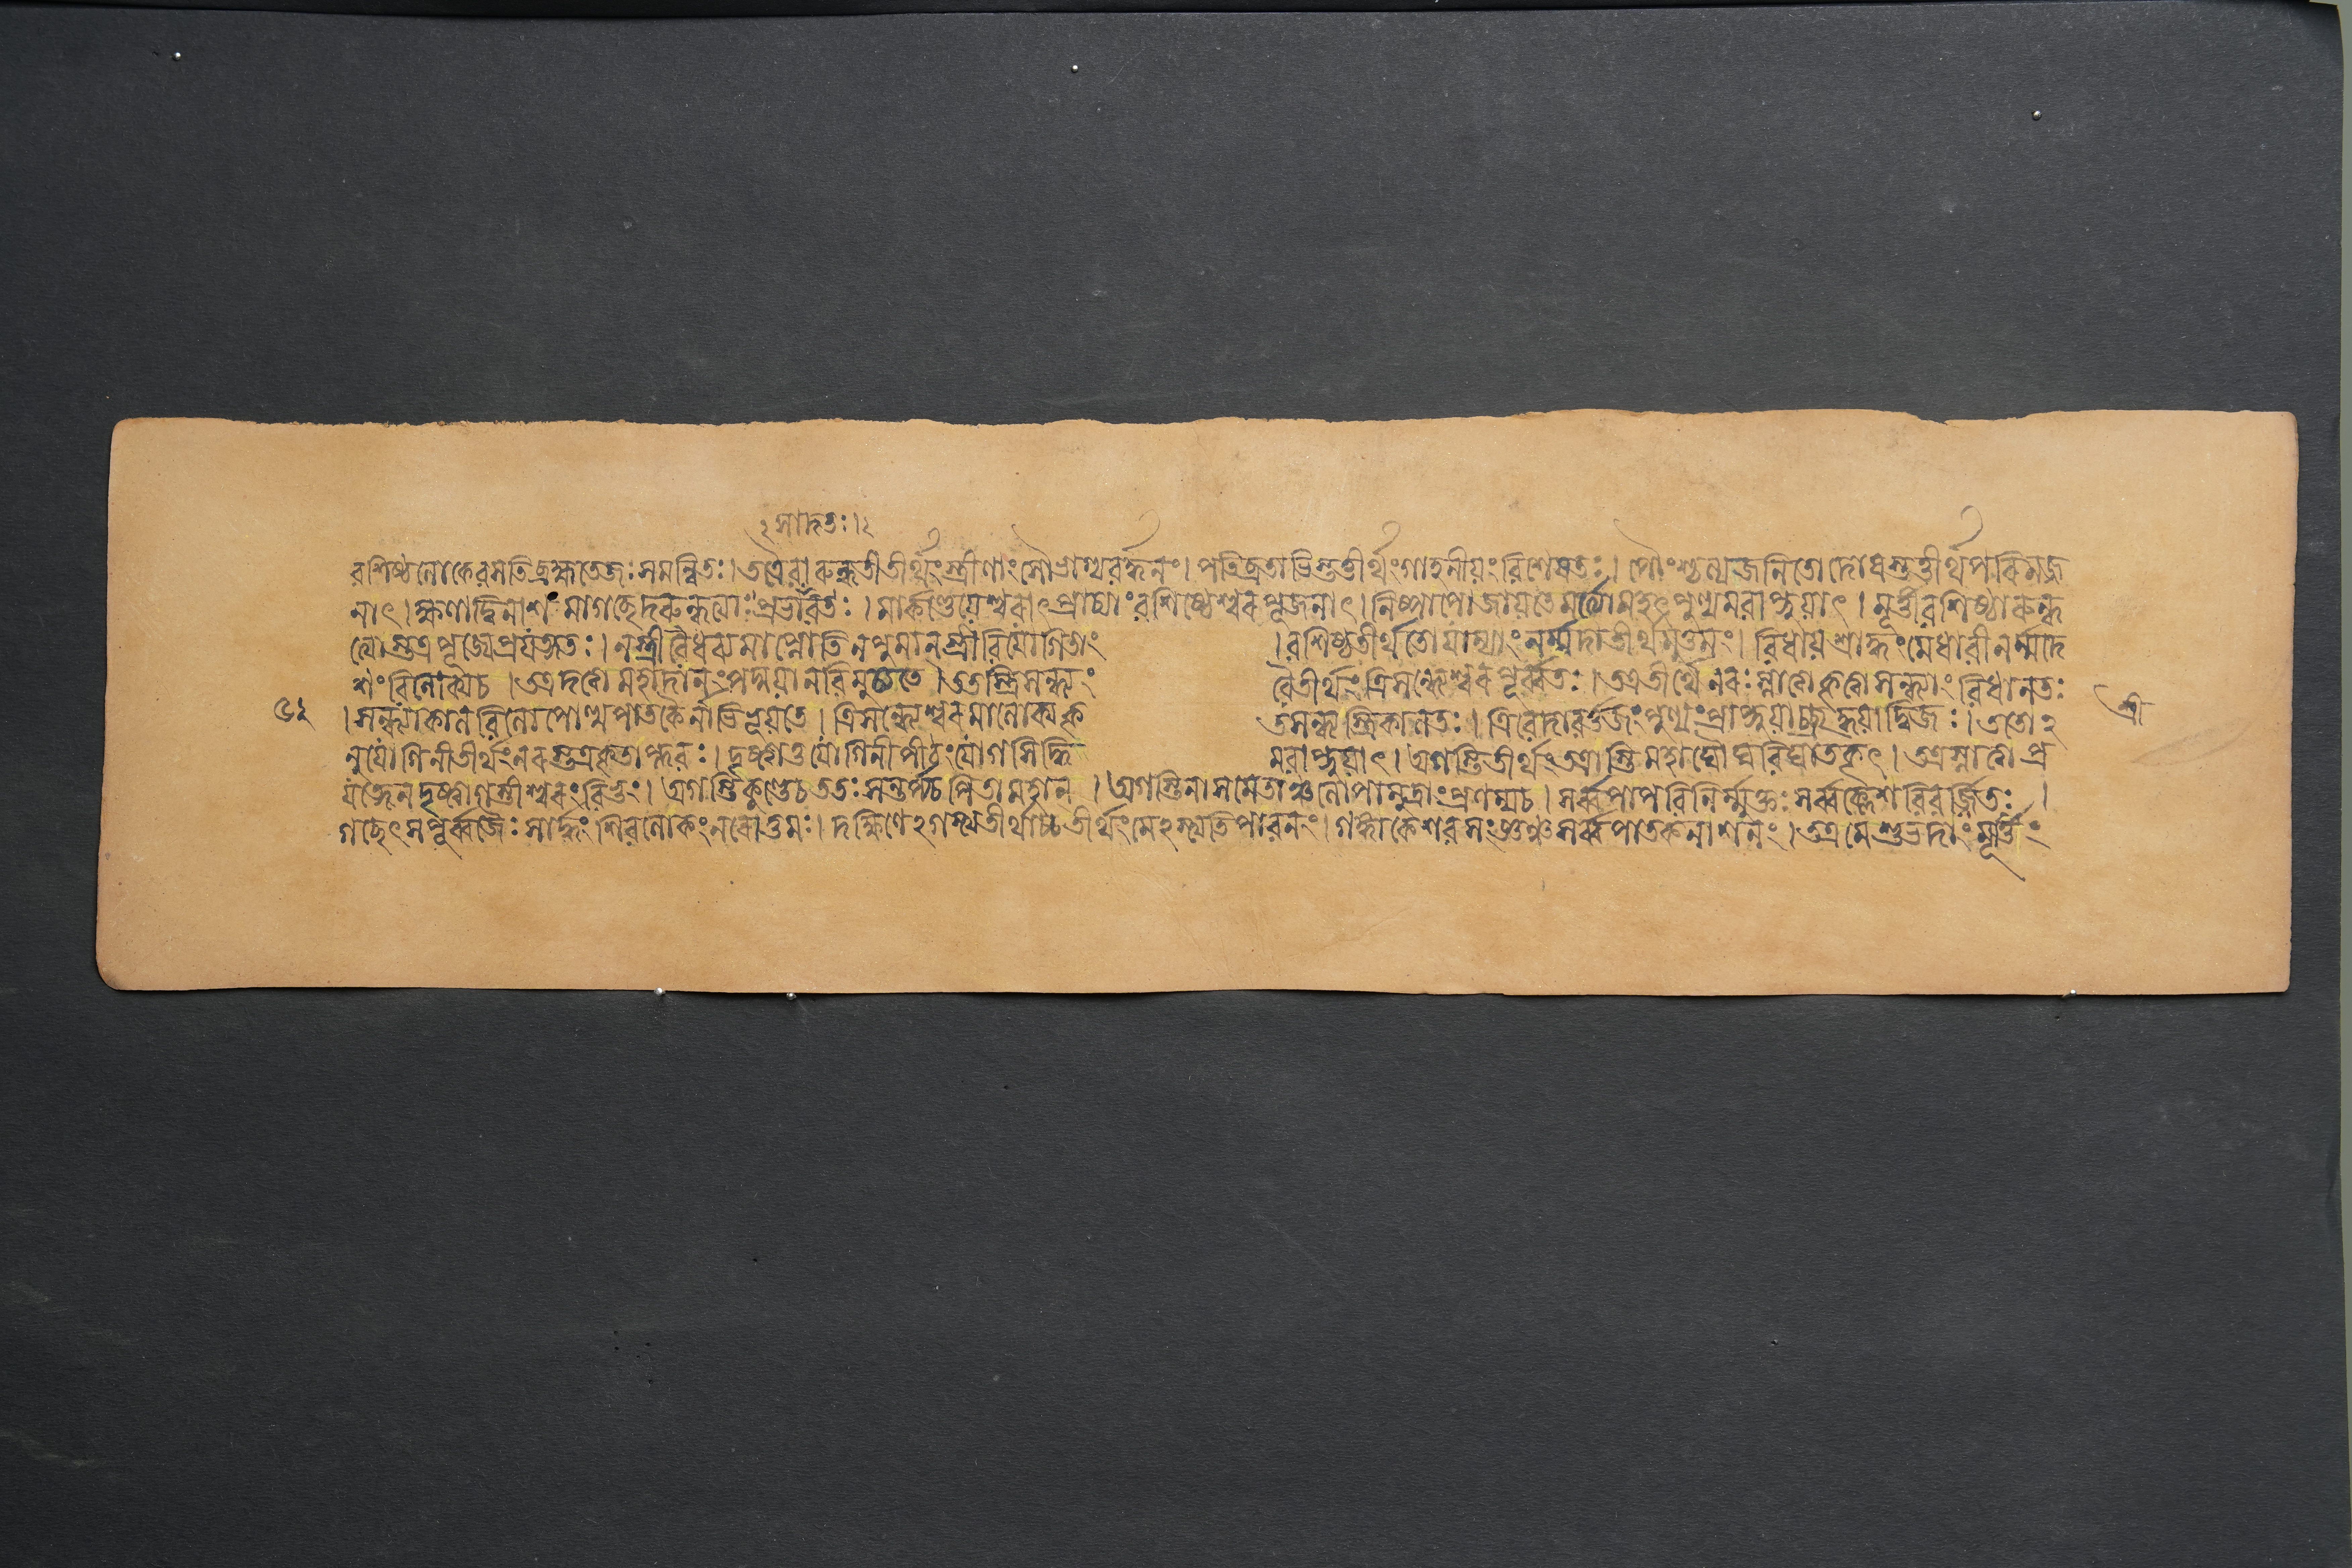 ১সাদতঃ।১
বশিষ্ঠলোকেবসতিব্রহ্মতেজঃসমন্বিতঃ।তত্রৈবারুন্ধতীতীর্থংস্ত্রীণাংসৌভাগ্যবর্দ্ধনং।পতিব্রতাভিস্তুতীর্থংগাহনীয়ংবিশেষতঃ।পৌংশ্চল্যজনিতোদোষস্তত্তীর্থপরিমজ্জ
নাৎ।ক্ষণাদ্বিনাশমাগচ্ছেদরুন্ধত্যাঃপ্রভাবতঃ।মার্কণ্ডেয়েশ্বরাৎপ্রাচ্যাংবশিষ্ঠেশ্বরপূজনাৎ।নিষ্পাপোজায়তেমর্ত্যোমহৎপুণ্যমবাপ্নুয়াৎ।মূর্ত্তীবশিষ্ঠারুন্ধ
ত্যোস্তত্রপূজ্যেপ্রযত্নতঃ।নস্ত্রীবৈধব্যমাপ্নোতিনপুমান্স্ত্রীবিয়োগিতাং ।বশিষ্ঠতীর্থতোযাম্যাংনর্ম্মদাতীর্থমুত্তমং।বিধায়শ্রাদ্ধংমেধাবীনর্ম্মদে
শংবিলোক্যচ।তত্রদত্ত্বামহাদানংপদ্ময়ানবিমুচ্যতে।ততস্ত্রিসন্ধ্যং বৈতীর্থংত্রিসন্ধ্যেশ্বরপূর্ব্বতঃ।তত্রতীর্থেনরঃস্নাত্বাকৃত্বাসন্ধ্যাংবিধানতঃ
৬২ ।সন্ধ্যাকালবিলোপোত্থপাতকৈর্নাভিভূয়তে।ত্রিসন্ধ্যেশ্বরমালোক্যকৃ তসন্ধ্যস্ত্রিকালতঃ।ত্রিবেদাবর্ত্তজংপুণ্যংপ্রাপ্নুয়াচ্ছ্রদ্ধয়াদ্বিজঃ।ততো২ শ্রী
নুযোগিনীতীর্থংনরস্তত্রকৃতাপ্লবঃ।দৃষ্ট্বাতুযোগিনীপীঠংযোগসিদ্ধি মবাপ্নুয়াৎ।অগস্তিতীর্থংতত্রাস্তিমহাঘৌঘবিঘাতকৃৎ।তত্রস্নাত্বাপ্র
যত্নেনদৃষ্ট্বাগস্তীশ্বরংবিভুং।অগস্তিকুণ্ডেচততঃসন্তর্প্যচপিতামহান্।অগস্তিনাসমেতাঞ্চলোপামুদ্রাংপ্রণম্যচ।সর্ব্বপাপবিনির্ম্মুক্তঃসর্ব্বক্লেশবিবর্জ্জিতঃ।
গচ্ছেৎসপূর্ব্বজৈঃসার্দ্ধংশিবলোকংনরোত্তমঃ।দক্ষিণে২গস্ত্যতীর্থাচ্চতীর্থংমে২স্ত্যতিপাবনং।গঙ্গাকেশবসংজ্ঞঞ্চসর্ব্বপাতকনাশনং।তত্রমেশুভদাংমূর্ত্তিং